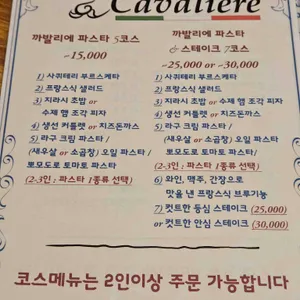 Cavaliere
까발리에 파스타 5코스
~15,000
1) 샤퀴테리 부르스케타
2) 프랑스식 샐러드
3) 지라시 초밥 or
수제 햄 조각 피자
4) 생선 커틀렛 or 치즈돈까스
5) 라구 크림 파스타 /
(새우살 or 소곱창) 오일 파스타 /
뽀모도로 토마토 파스타
(2-3인 : 파스타 1종류 선택)
까발리에 파스타
& 스테이크 7코스
~25,000 or ~30,000
1) 샤퀴테리 부르스케타
2) 프랑스식 샐러드
3) 지라시 초밥 or 수제 햄 조각 피자
4) 생선 커틀렛 or 치즈돈까스
5) 라구 크림 파스타 /
(새우살 or 소곱창) 오일 파스타 /
뽀모도로 토마토 파스타
(2-3인 : 파스타 1종류 선택)
6) 와인, 맥주, 간장으로
맛을 낸 프랑스식 브루기뇽
7) 컷트한 등심 스테이크 (25,000)
or 컷트한 안심 스테이크 (30,000)
코스메뉴는 2인이상 주문 가능합니다